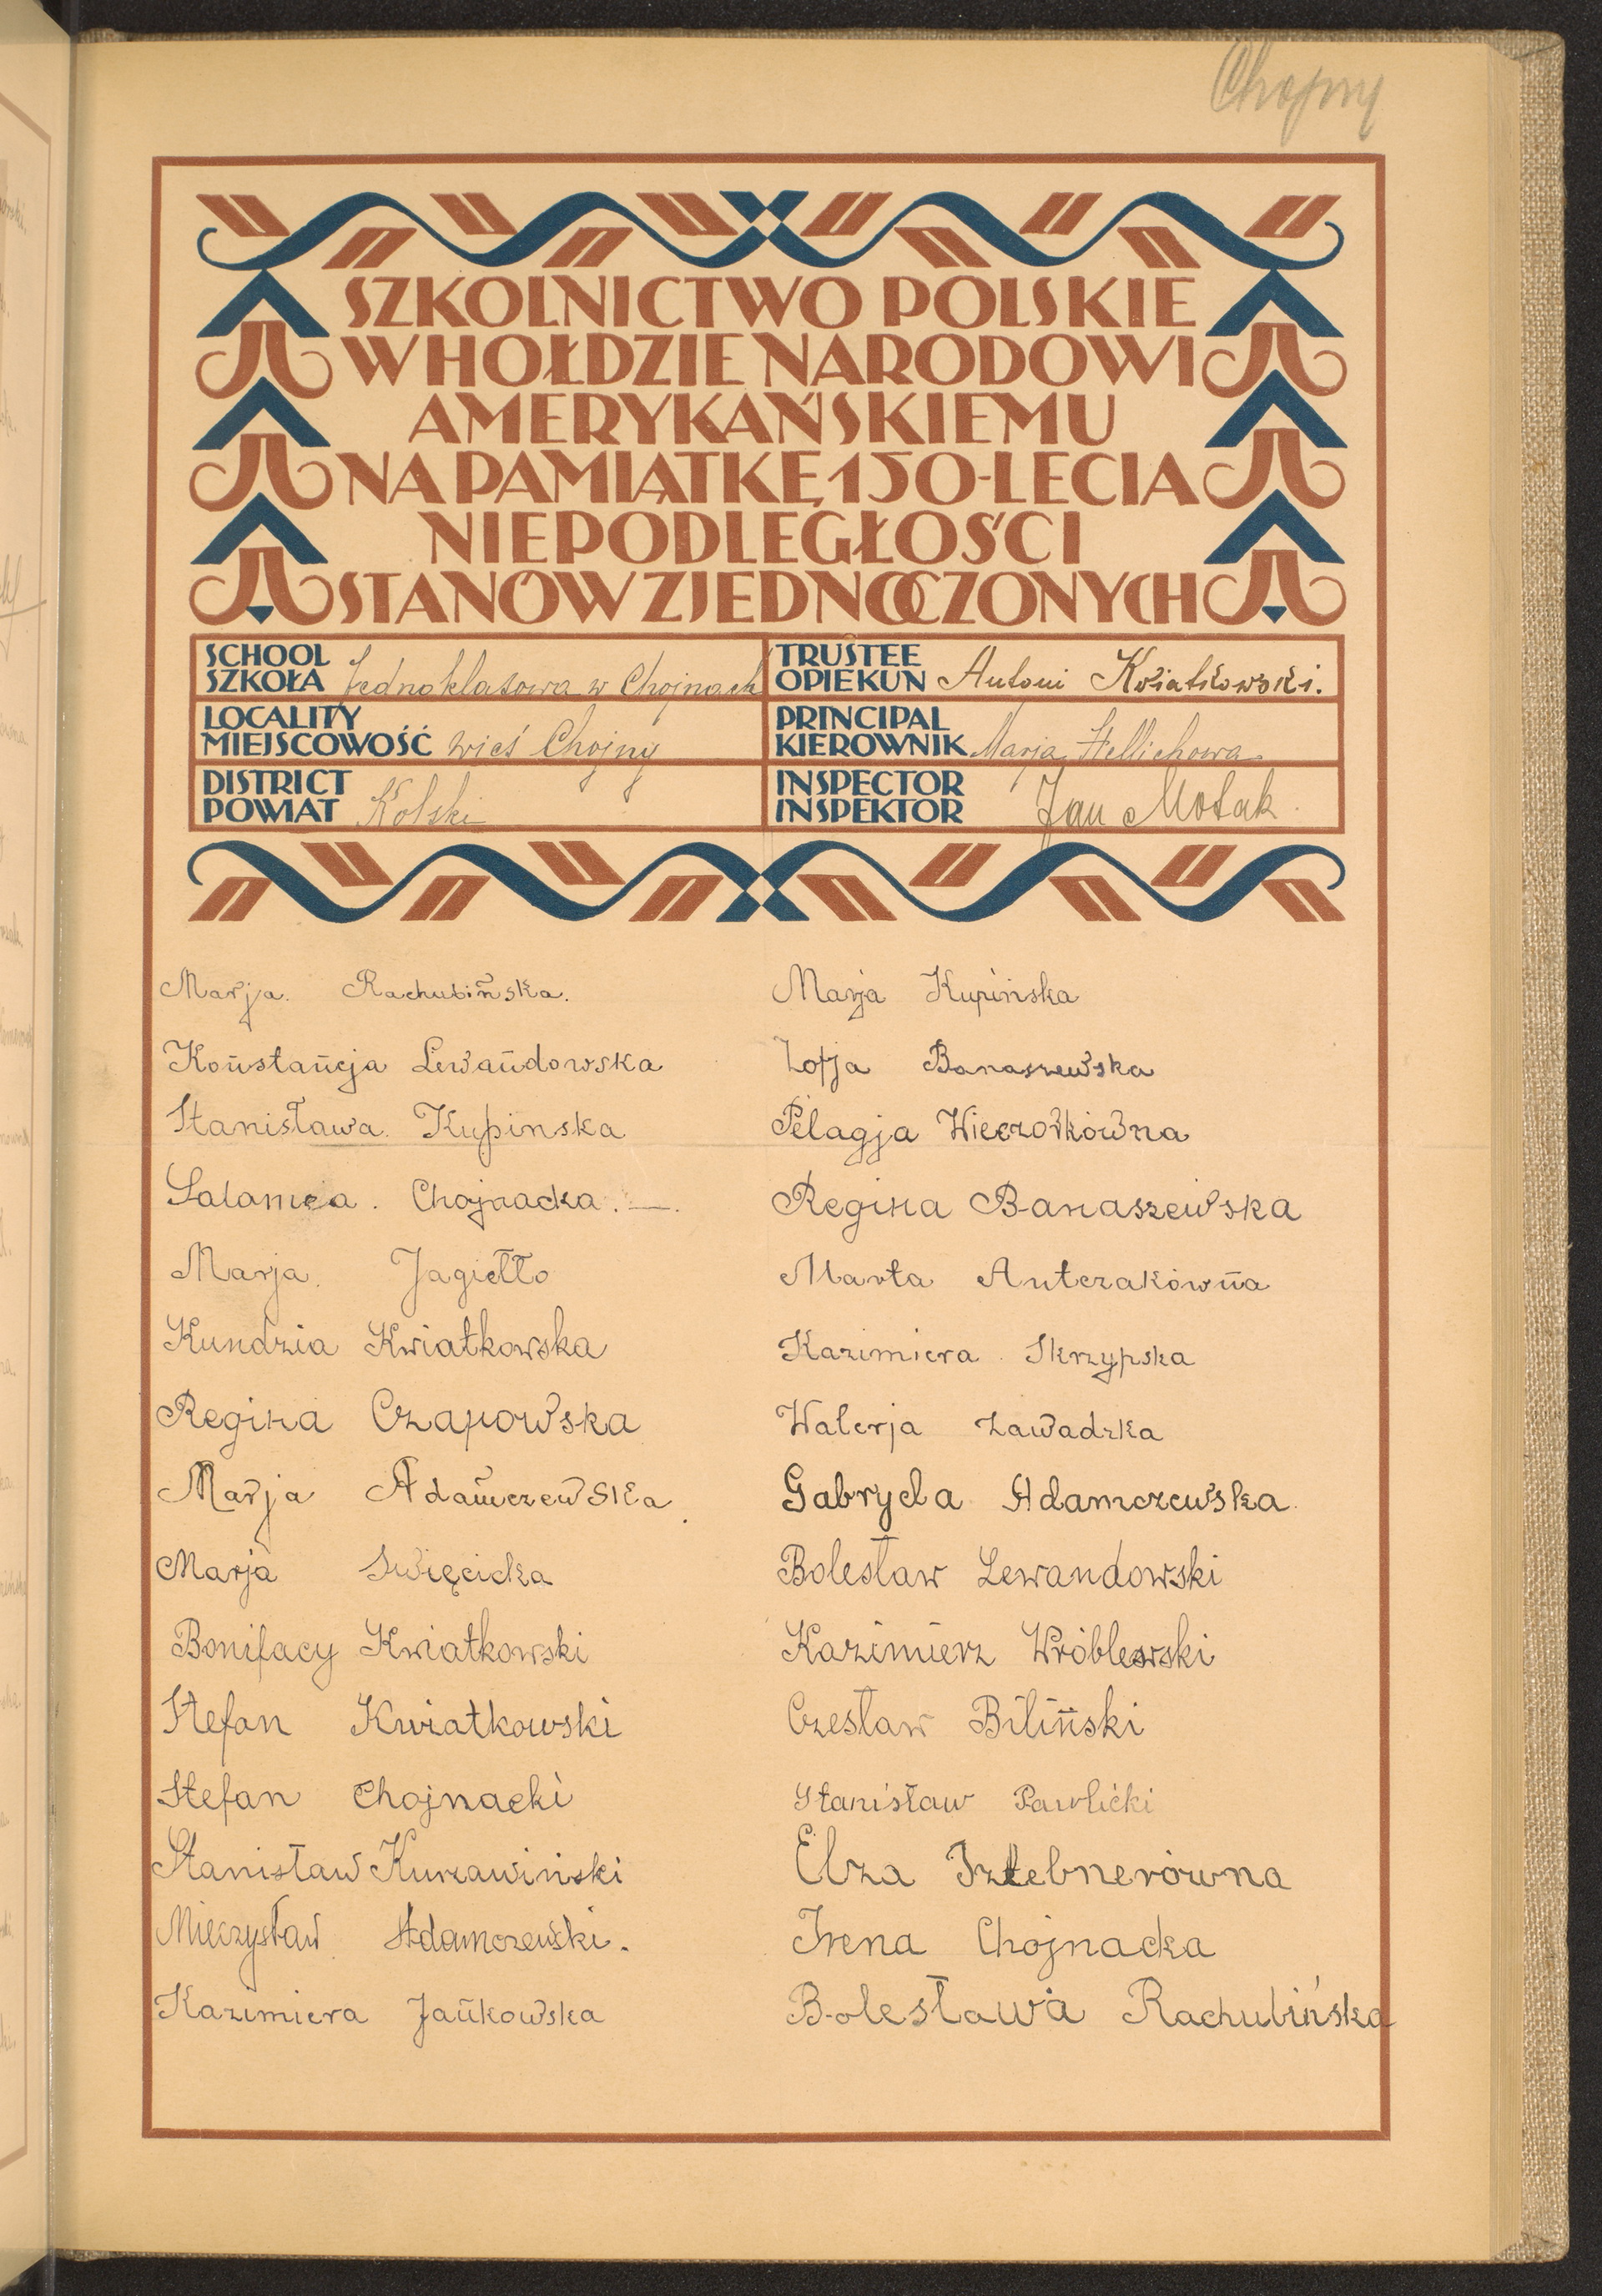 Chojny
SZKOLNICTWO POLSKIE
W HOŁDZIE NARODOWI
AMERYKAŃSKIEMU
NA PAMIĄTKĘ 150-LECIA
NIEPODLEGŁOŚCI
STANÓW ZJEDNOCZONYCH
SCHOOL
SZKOŁA Jednoklasowa w Chojnach
TRUSTEE
OPIEKUN Antoni Kwiatkowski.
LOCALITY
MIEJSCOWOŚĆ wieś Chojny
PRINCIPAL
KIEROWNIK Marja Hellichowa
DISTRICT
POWIAT Kolski
INSPECTOR
INSPEKTOR Jan
Marja. Rachubińska.
Konstancja Lewandowska
Stanisława Kupinska
Salamea. Chojnacka.—.
Marja. Jagiełło
Kundzia Kwiatkowska
Regina Czapowska
Marja Adamczewska.
Marja Swięcicka
Bonifacy Kwiatkowski
Stefan Kwiatkowski
Stefan Chojnacki
Stanisław Kurzawiński
Mieczysław Adamczewski.
Kazimiera Jankowska
Marja Kupińska
Zofja Banaszewska
Pelagja Wieczorkówna
Regina Banaszewska
Marta Antczakówna
Kazimiera Skrzypska
Walerja Zawadzka
Gabryela Adamczewska.
Bolesław Lewandowski
Kazimierz Wróblewski
Czesław Biliński
Stanisław Pawlicki
Elza
Irena Chojnacka
Bolesława Rachubińska